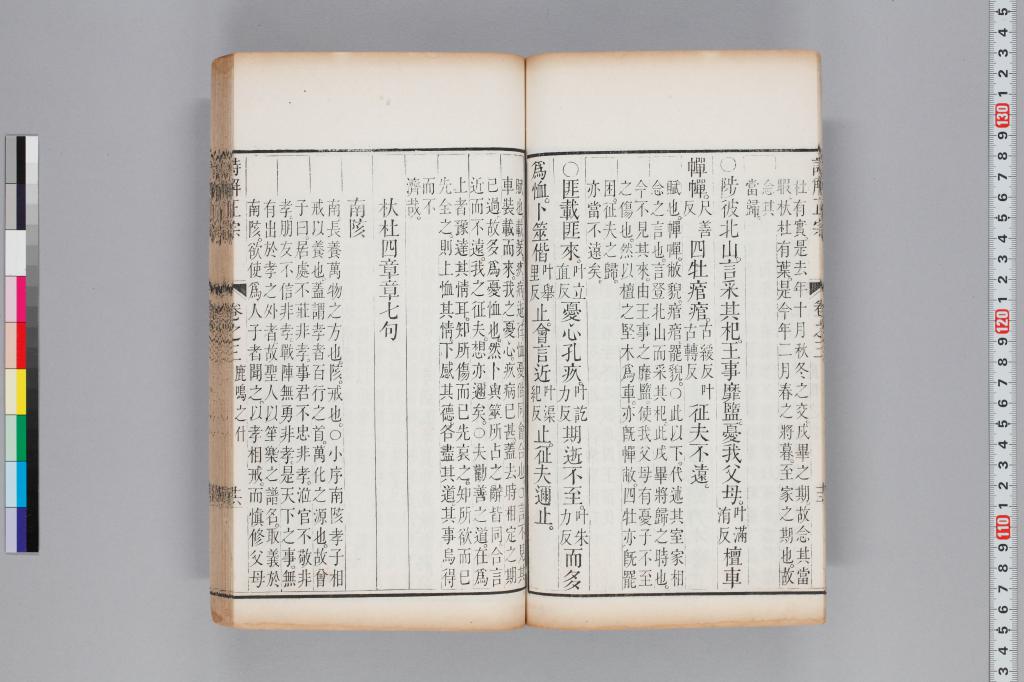 詩解正宗 卷之三
杜有實是去年十月秋冬之交戍畢之期故念其當
暇杕杜有葉是今年二月春之將暮至家之期也故
念其
當歸
〇陟彼北山言采其杞王事靡盬憂我父母叶滿洧反檀車
幝幝尺善反四牡痯痯古緩反叶古轉反征夫不遠
賦也幝幝敝貌痯痯罷貌〇此以下代述其室家相
念之言也言登北山而采其杞此戍畢將歸之時也
今不見其來由王事之靡盬使我父母有憂子不至
之傷也然以檀之堅木爲車亦既幝敝四牡亦既罷
困征夫之歸
亦當不遠矣
〇匪載匪來叶立直反憂心孔疚叶訖力反期逝不至叶朱力反而多
爲恤卜筮偕叶舉里反止會言近叶渠紀反止征夫邇止
車裝載而來我之憂心疚病已甚蓋去時相定之期
已過故多爲憂恤也然卜與筮所占之辭皆同合言
近而不遠我之征夫想亦邇矣〇夫勸善之道在爲
上者豫達其情耳知所傷而已先哀之知所欲而已
先全之則上恤其情下感其德各盡其道其事烏得
而不
濟哉
杕杜四章章七句
南陔
南長養萬物之方也陔戒也〇小序南陔孝子相
戒以養也蓋謂孝者百行之首萬化之源也故曾
子曰居處不莊非孝事君不忠非孝涖官不敬非
孝朋友不信非孝戰陣無勇非孝是天下之事無
有出於孝之外者故聖人以笙樂之譜名取義於
南陔欲使爲人子者聞之以孝相戒而愼修父母
詩解正宗 卷之三 鹿鳴之什 十六